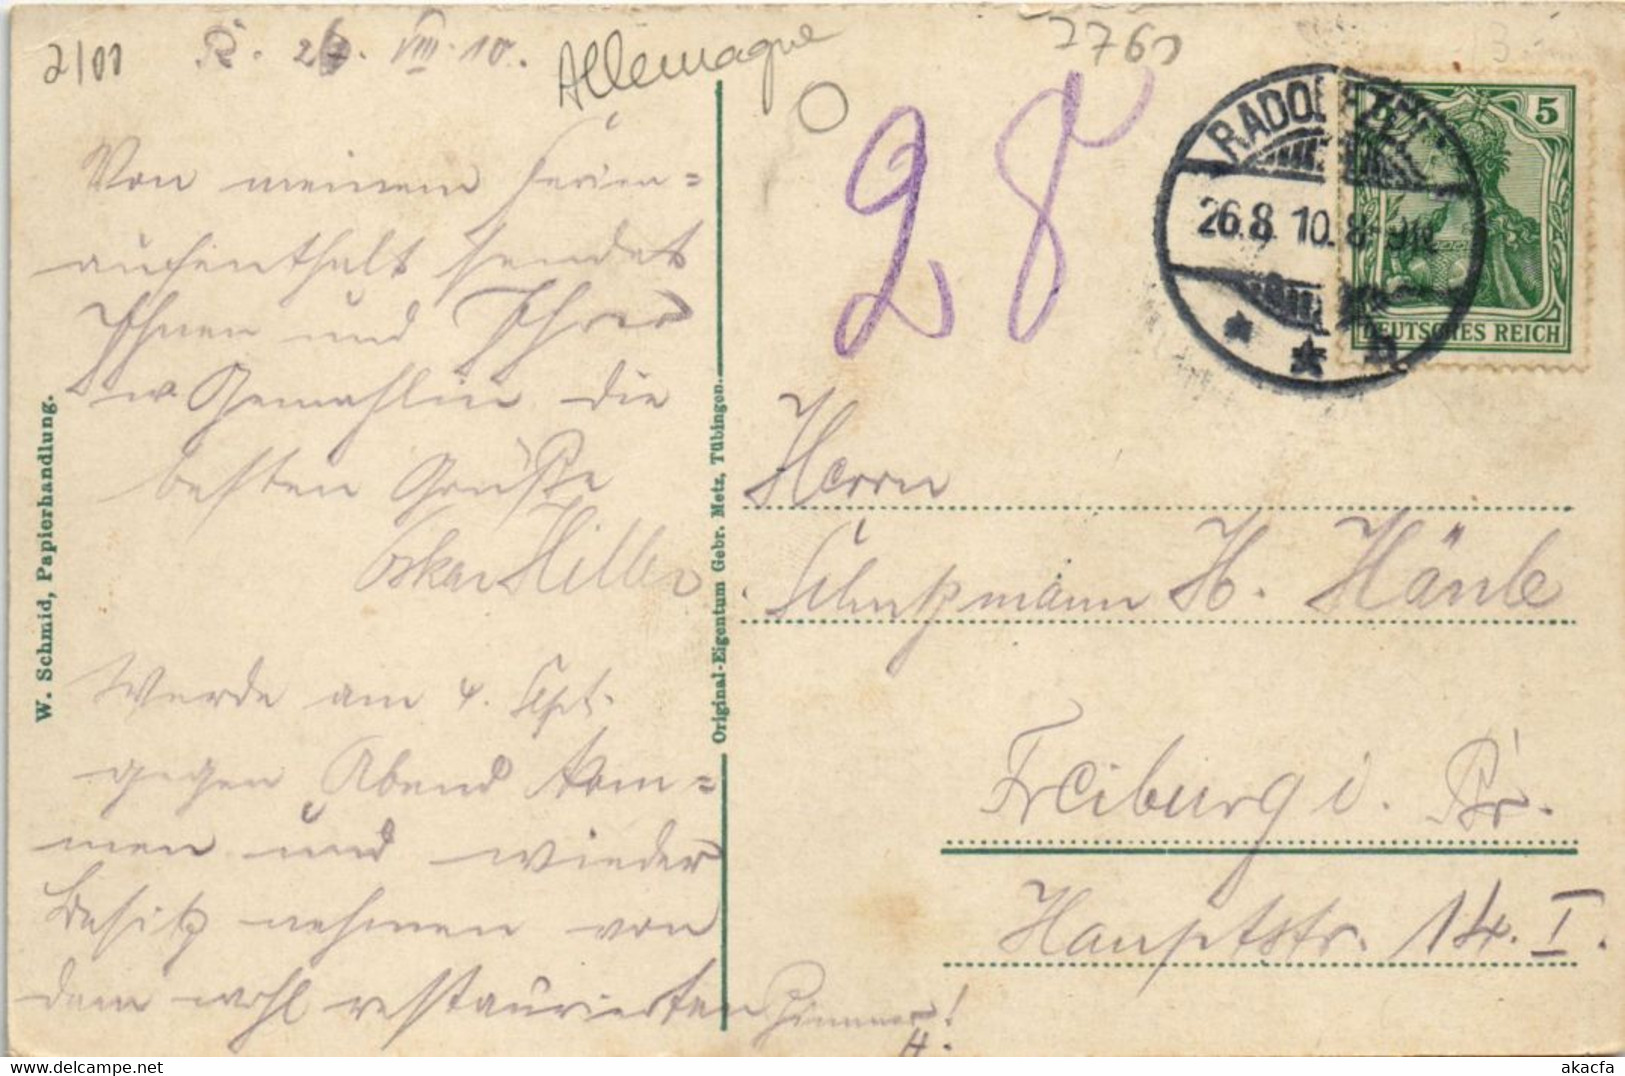 2/01
R. 26. VIII. 10.
Allemagne
2760
Von meinem Ferien=
aufenthalt sendet
Ihnen und Ihrer
w Gemahlin die
besten Grüße
Oskar Hiller
Werde am 4. Sept.
gegen Abend kom=
men und wieder
Besitz nehmen von
dem wohl restaurierten Zimmer!
H.
W. Schmid, Papierhandlung.
Original-Eigentum Gebr. Metz, Tübingen.
28
RADOLFZELL
26.8.10. 8-9
5
DEUTSCHES REICH
Herrn
Schutzmann H. Hänle
Freiburg i. Br.
Hauptstr. 14. I.
akacfa